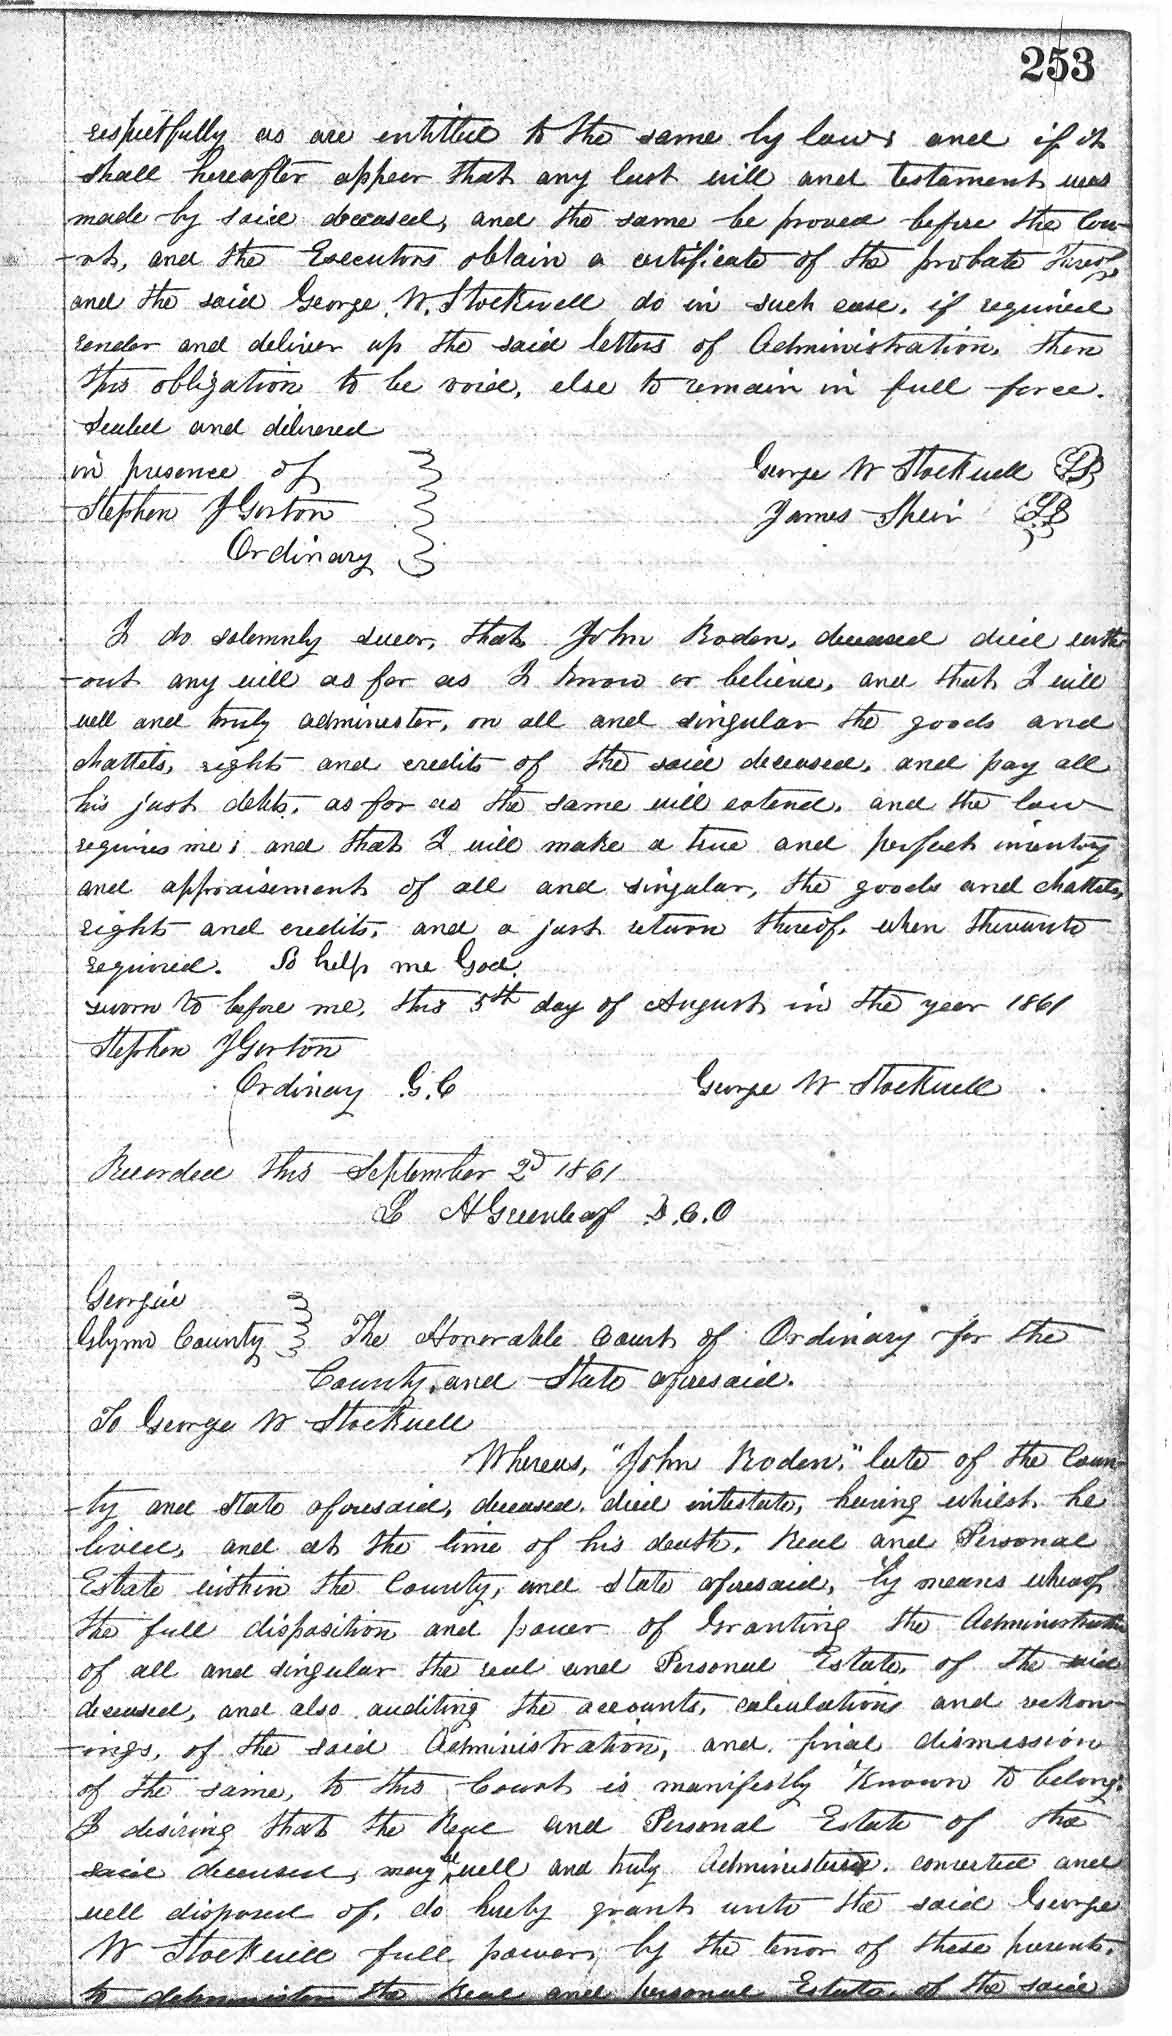 253
respectfully as are entitled to the same by law; and if it
shall hereafter appear that any last will and testament was
made by said deceased, and the same be proved before the Cou-
-rt, and the Executors obtain a certificate of the probate thereof
and the said George W. Stockwell do in such case, if required
render and deliver up the said letters of Administration, then
this obligation to be void, else to remain in full force.
Sealed and delivered
in presence of
George W Stockwell LS
Stephen J Gorton
James Shein LS
Ordinary
I do solemnly swear, that John Roden, deceased died with
-out any will as far as I know or believe, and that I will
well and truly administer, on all and singular the goods and
chattels, rights and credits of the said deceased, and pay all
his just debts, as far as the same will extend, and the law
requires me; and that I will make a true and perfect inventory
and appraisement of all and singular, the goods and chattels,
rights and credits, and a just return thereof, when thereunto
required. So help me God.
sworn to before me, this 5th day of August in the year 1861
Stephen J Gorton
Ordinary G.C
George W Stockwell
Recorded this September 2d 1861
L H Greenleaf D.C.O
Georgia
Glynn County
The Honorable Court of Ordinary for the
County, and State aforesaid.
To George W Stockwell
Whereas, "John Roden," late of the Coun-
-ty and State aforesaid, deceased, died intestate, having whilst he
lived, and at the time of his death, Real and Personal
Estate within the County, and State aforesaid, by means whereof
the full disposition and power of Granting the Administration
of all and singular the real and Personal Estate, of the said
deceased, and also auditing the accounts, calculations and reckon-
-ings, of the said Administration, and final dismission
of the same, to this Court is manifestly Known to belong.
I desiring that the Real and Personal Estate of the
said deceased, may well and truly Administered, converted and
well disposed of, do hereby grant unto the said George
W Stockwell full power, by the tenor of these presents,
to administer the Real and personal Estate, of the said